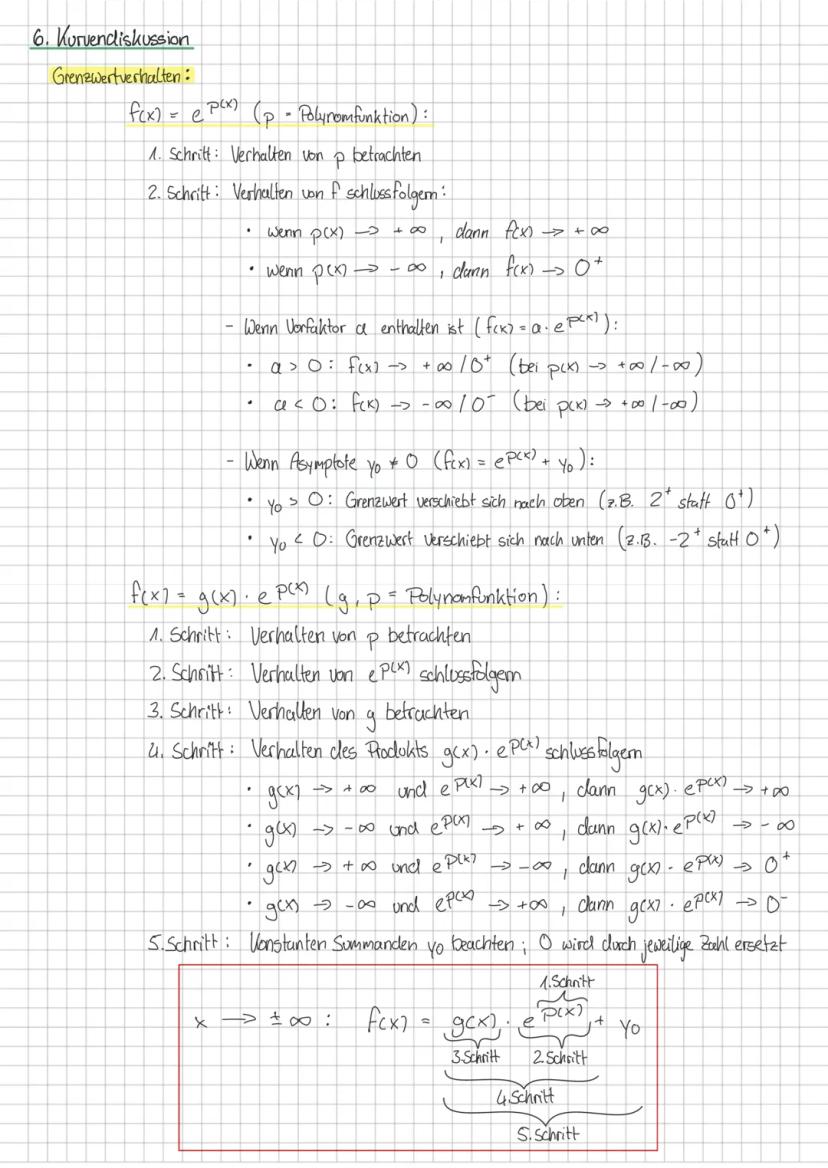 6. Kurvendiskussion
Grenzwertverhalten:
f(x) = e^p(x) (p = Polynomfunktion):
1. Schritt: Verhalten von p betrachten
2. Schritt: Verhalten von f schlussfolgern:
• wenn p(x) → +∞, dann f(x) → +∞
• wenn p(x) → -∞, dann f(x) → 0⁺
- Wenn Vorfaktor a enthalten ist (f(x) = a · e^p(x)):
• a > 0: f(x) → +∞ / 0⁺ (bei p(x) → +∞ / -∞)
• a < 0: f(x) → -∞ / 0⁻ (bei p(x) → +∞ / -∞)
- Wenn Asymptote y₀ ≠ 0 (f(x) = e^p(x) + y₀):
• y₀ > 0: Grenzwert verschiebt sich nach oben (z.B. 2⁺ statt 0⁺)
• y₀ < 0: Grenzwert verschiebt sich nach unten (z.B. -2⁺ statt 0⁺)
f(x) = g(x) · e^p(x) (g, p = Polynomfunktion):
1. Schritt: Verhalten von p betrachten
2. Schritt: Verhalten von e^p(x) schlussfolgern
3. Schritt: Verhalten von g betrachten
4. Schritt: Verhalten des Produkts g(x) · e^p(x) schlussfolgern
• g(x) → +∞ und e^p(x) → +∞, dann g(x) · e^p(x) → +∞
• g(x) → -∞ und e^p(x) → +∞, dann g(x) · e^p(x) → -∞
• g(x) → +∞ und e^p(x) → -∞, dann g(x) · e^p(x) → 0⁺
• g(x) → -∞ und e^p(x) → +∞, dann g(x) · e^p(x) → 0⁻
5. Schritt: Konstanten Summanden y₀ beachten; 0 wird durch jeweilige Zahl ersetzt
1. Schritt
x → ±∞: f(x) = g(x) · e^p(x) + y₀
3. Schritt 2. Schritt
4. Schritt
5. Schritt